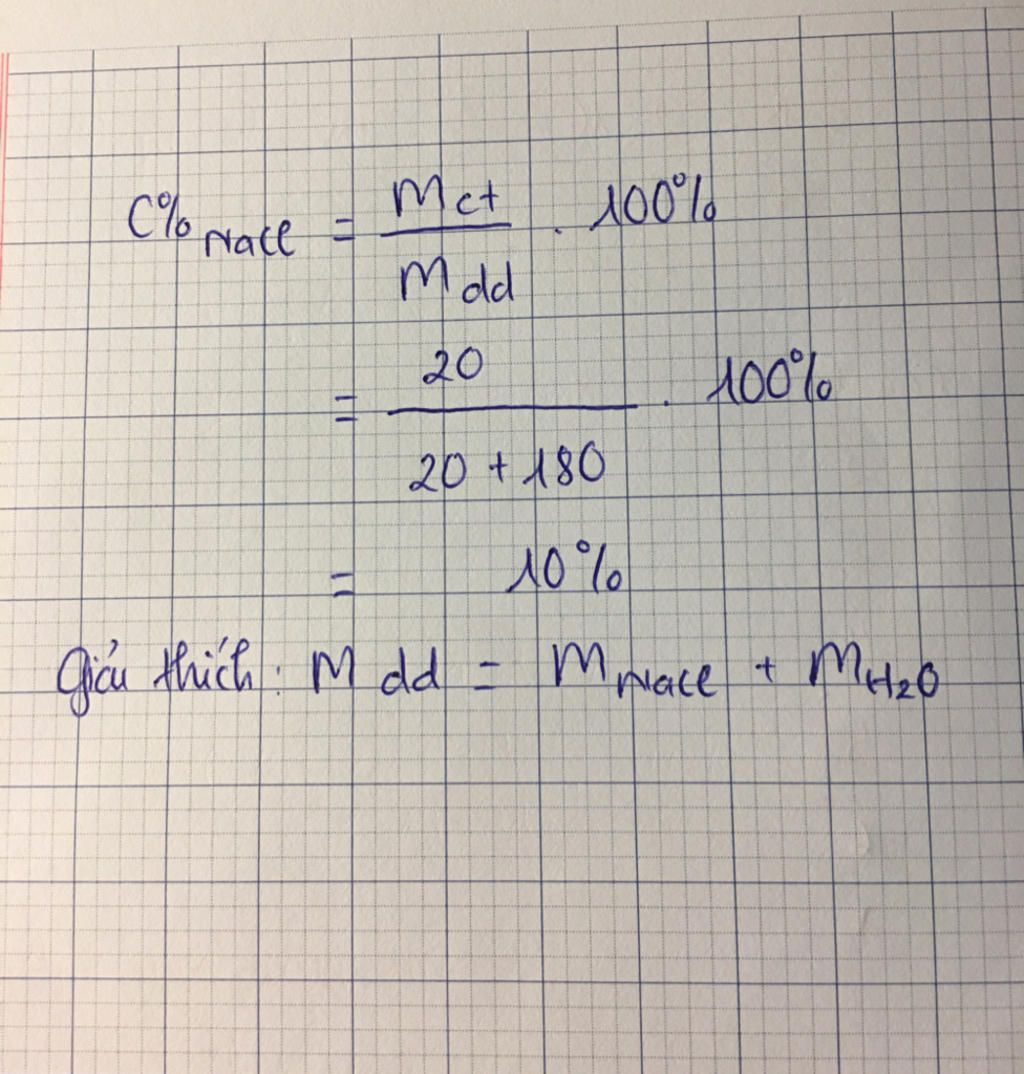 C% NaCl = mct / mdd . 100%
= 20 / 20 + 180 . 100%
= 10%
Giải thích: mdd = mNaCl + mH2O